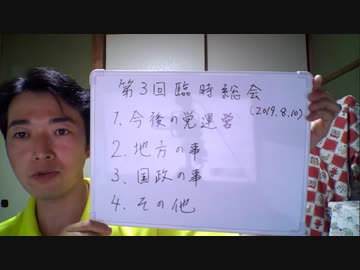 第3回臨時総会
(2019.8.10)
1.今後の党運営
2.地方の事
3.国政の事
4.その他